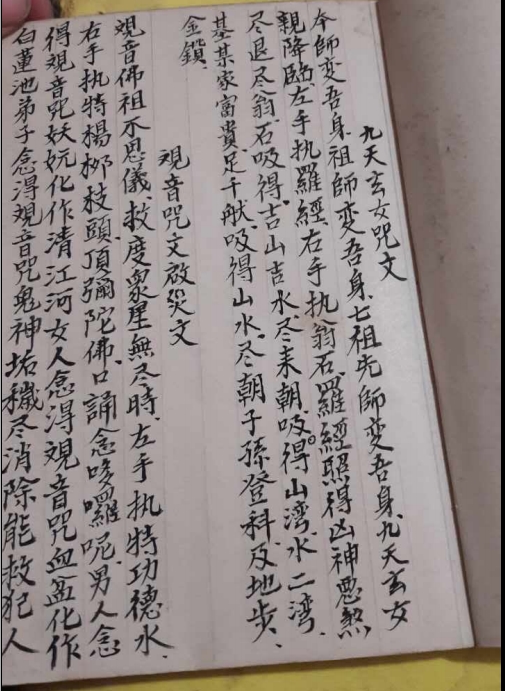 九天玄女咒文
本師变吾身、祖師变吾身、七祖先師变吾身、九天玄女
親降臨、左手执羅經、右手执翁石、羅經照得凶神悪煞
尽退尽、翁石吸得、吉山吉水尽来朝、吸得山湾、水二湾、
墓某家富貴、足千猷、吸得山水、尽朝子孫登科及地步、
金鎖、
觀音咒文啟災文
觀音佛祖不思儀、救度衆里無尽時、左手执特功德水、
右手执特楊柳枝頭、頂彌陀佛、口誦念哆囉呢、男人念
得觀音咒妖妧化作清江河女人念得觀音咒血盆化作
白蓮池弟子念得觀音咒鬼神垢穢尽消除能救犯人